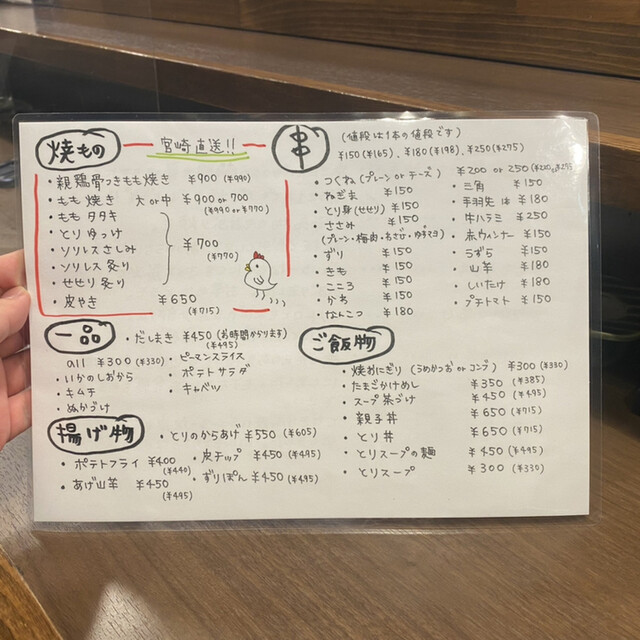 焼もの
宮崎直送!!
・親鶏骨つきもも焼き ¥900 (¥990)
・もも焼き 大or中 ¥900 or 700
(¥990 or ¥770)
・ももタタキ
・とりゆっけ
・ソリレスさしみ
・ソリレス炙り
・せせり炙り
¥700
(¥770)
・皮やき ¥650
(¥715)
串
(値段は1本の値段です)
¥150(¥165)、¥180(¥198)、¥250(¥275)
・つくね(プレーン or チーズ) ¥200 or 250
・ねぎま ¥150
・とり身(せせり) ¥150
・ささみ ¥150
(プレーン・梅肉・わさび・ゆずマヨ)
・ずり ¥150
・きも ¥150
・こころ ¥150
・かわ ¥150
・なんこつ ¥180
・三角 ¥150
・手羽先 ¥180
・牛ハラミ ¥250
・赤ウィンナー ¥150
・うずら ¥150
・山芋 ¥180
・しいたけ ¥180
・プチトマト ¥150
一品
・だしまき ¥450 (お時間かかります)
(¥495)
all ¥300 (¥330)
・いかのしおから
・キムチ
・ぬかづけ
・ピーマンスライス
・ポテトサラダ
・キャベツ
揚げ物
・とりのからあげ ¥550 (¥605)
・ポテトフライ ¥400
(¥440)
・皮チップ ¥450 (¥495)
・あげ山芋 ¥450
(¥495)
・ずりぽん ¥450 (¥495)
ご飯物
・焼おにぎり (うめかつお or コンブ) ¥300 (¥330)
・たまごかけめし ¥350 (¥385)
・スープ茶づけ ¥450 (¥495)
・親子丼 ¥650 (¥715)
・とり丼 ¥650 (¥715)
・とりスープの麺 ¥450 (¥495)
・とりスープ ¥300 (¥330)